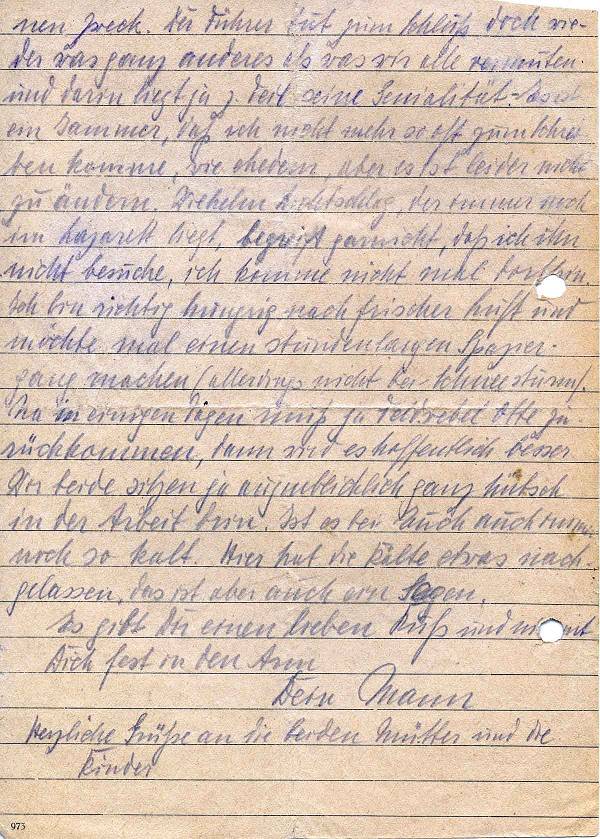 nen Zweck. Der Führer tut zum Schluß doch wie-
der was ganz anderes als was wir alle vermuten.
und darin liegt ja z. Teil seine Genialität. Es ist
ein Jammer, daß ich nicht mehr so oft zum Schrei
ben komme, wie ehedem, aber es ist leider nicht
zu ändern. Wilhelm, der immer noch
im Lazarett liegt, begreift garnicht, daß ich ihn
nicht besuche, ich komme nicht mal dorthin.
Ich bin richtig hungrig nach frischer Luft und
möchte mal einen stundenlangen Spazier-
gang machen (allerdings nicht bei Schneesturm).
Na in einigen Tagen muß ja Feldwebel Otte zu-
rückkommen, dann wird es hoffentlich besser.
Wir beide sitzen ja augenblicklich ganz hübsch
in der Arbeit drin. Ist es bei Euch auch immer
noch so kalt. Hier hat die Kälte etwas nach-
gelassen, das ist aber auch ein Segen.
Es gibt Dir einen lieben Kuß und nimmt
Dich fest in den Arm
Dein Mann
Herzliche Grüße an die beiden Mütter und die
Kinder
973